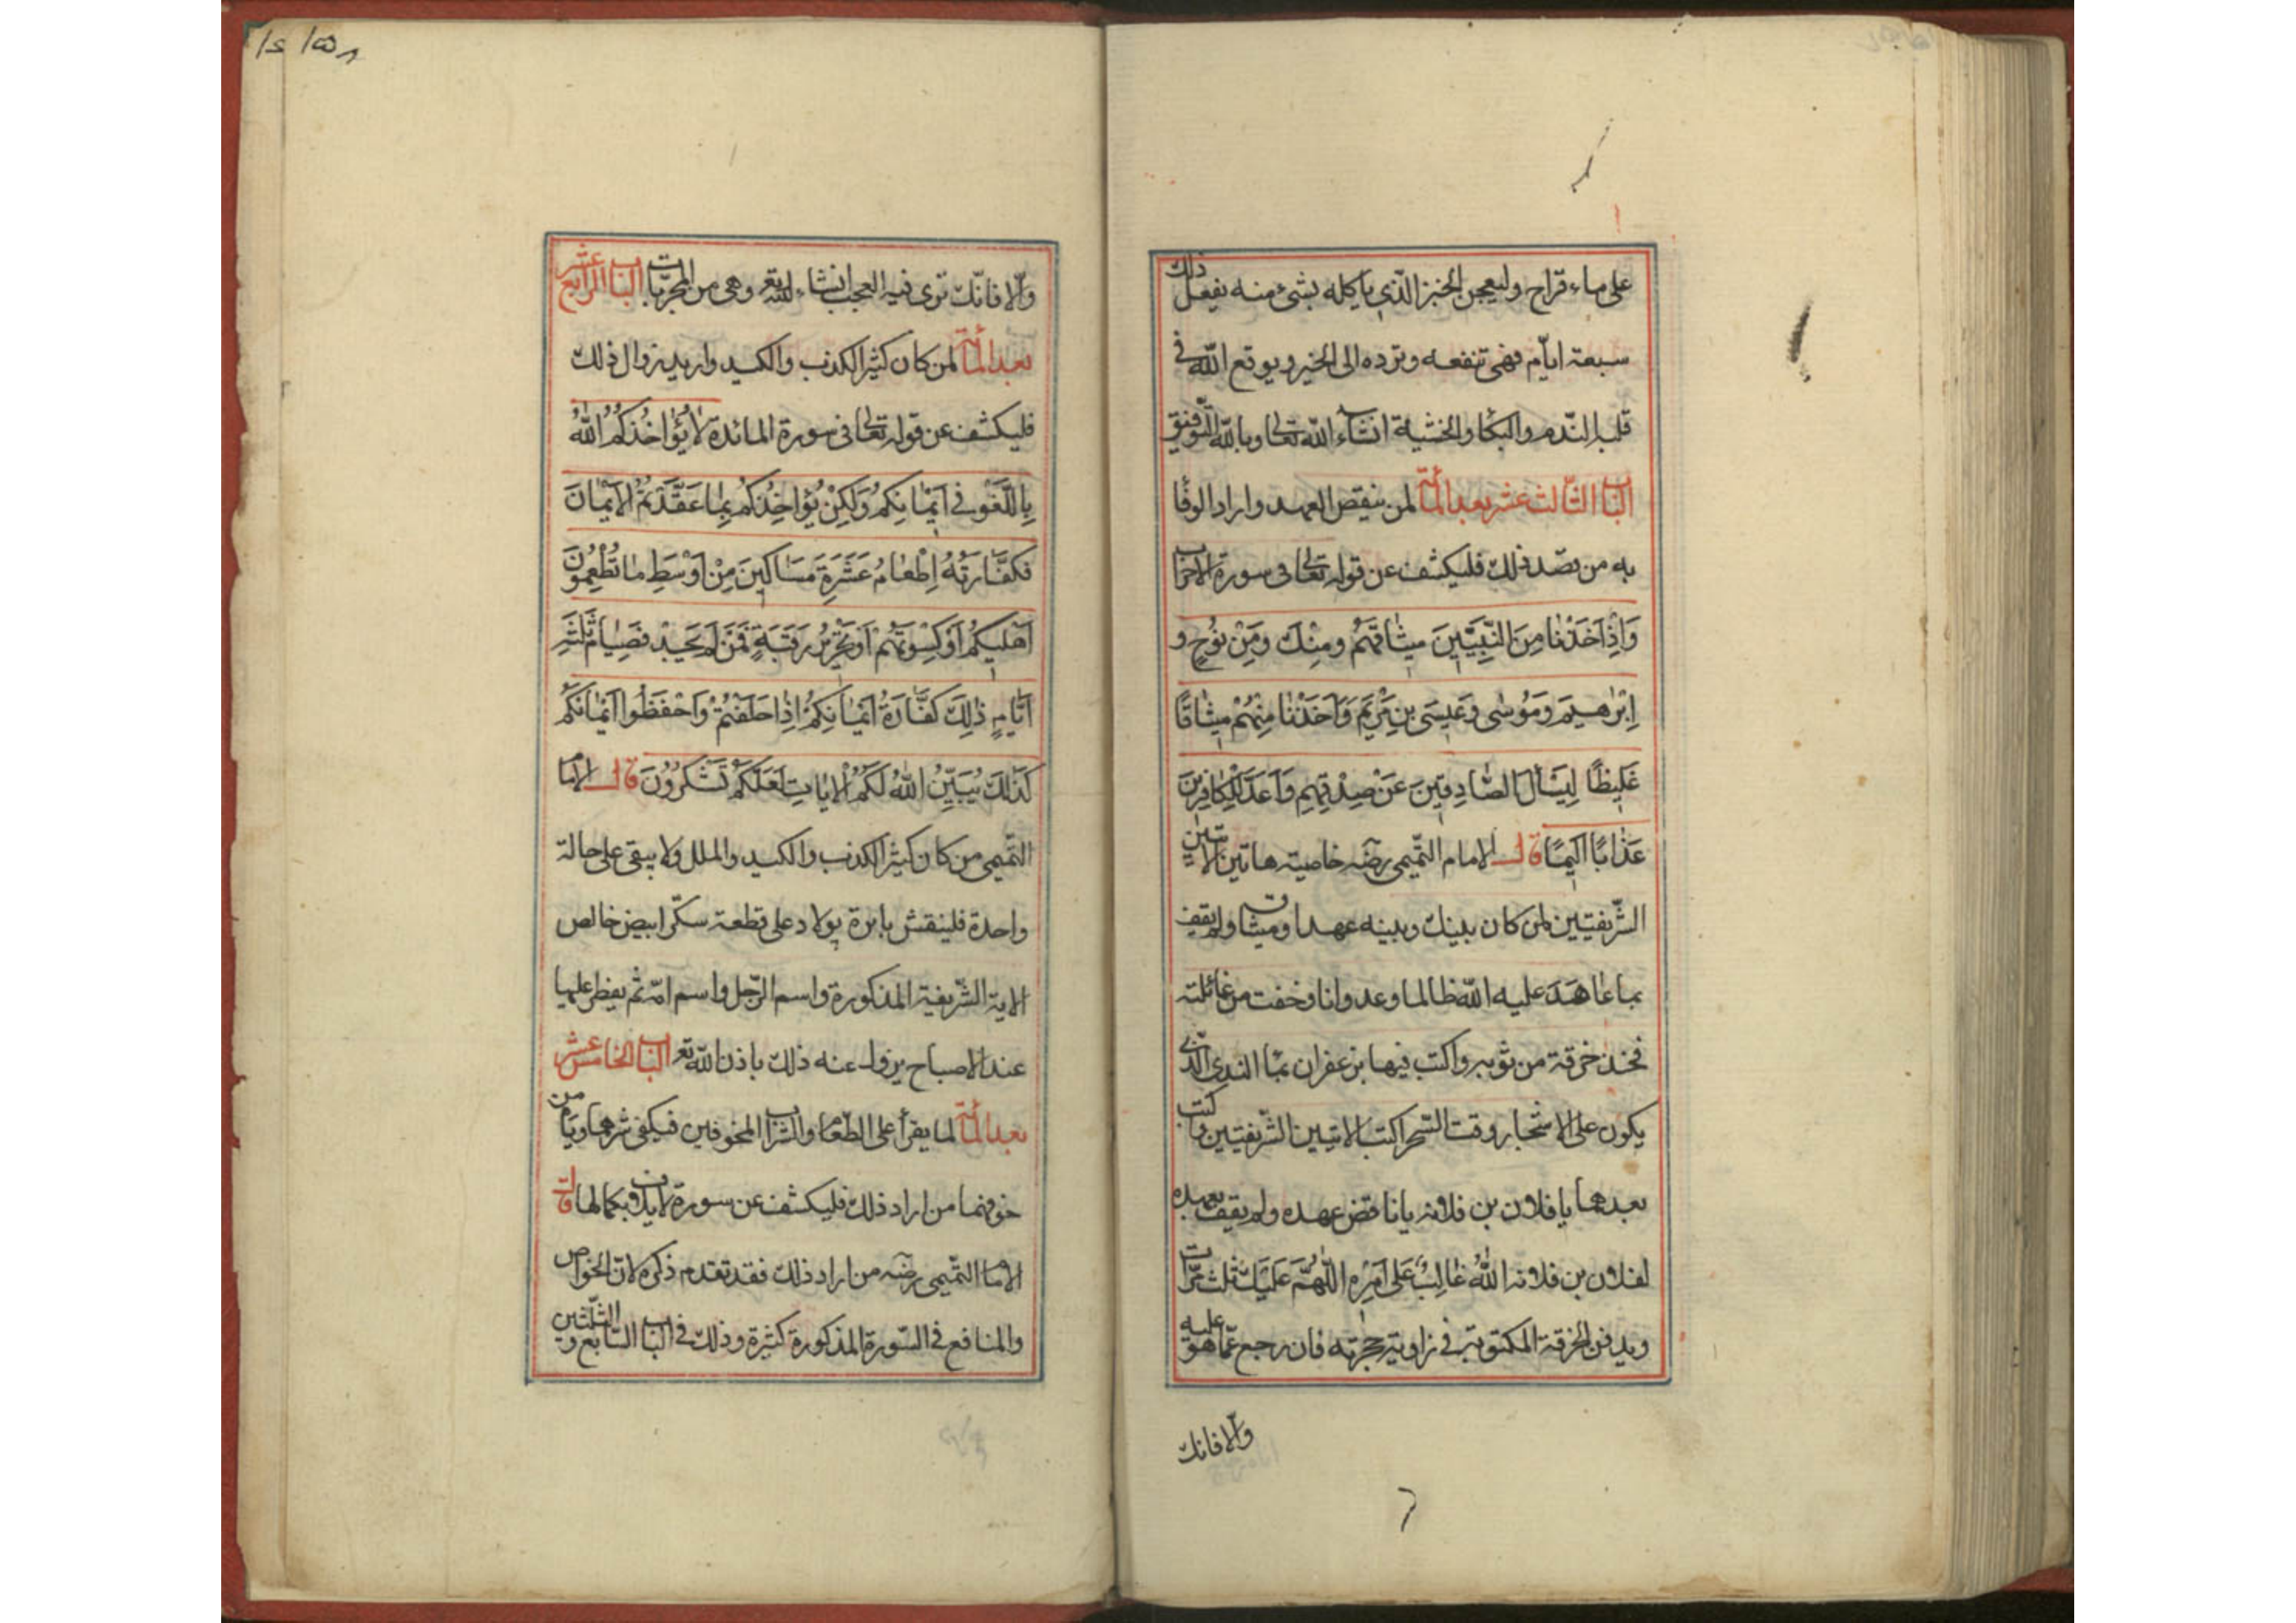 على ماء قراح وليعجن الخبز الذي ياكله بشئ منه يفعل ذلك
سبعة ايام فهى تنفعه وترده الى الخير ويوقع الله فى
قلبه الندم والبكا والخشية انشاء الله تعالى وبالله التوفيق
الباب الثالث عشر بعد المأة لمن ينقض العهد واراد الوفا
به من قصد ذلك فليكشف عن قوله تعالى فى سورة الاحزاب
وَاِذْ اَخَذْنَا مِنَ النَّبِيّينَ ميثاقَهُمْ ومِنْكَ ومِنْ نُوحٍ و
اِبْرٰهيمَ وَمُوسٰى وَعيسَى بنِ مَرْيَمَ وَاَخَذْنٰا مِنْهُمْ ميثاقًا
غَليظًا لِيَسْأَلَ الصّادِقينَ عَنْ صِدْقِهِمْ وَاَعَدَّ لِلْكافِرينَ
عَذابًا اَليمًا قال الامام التميمى رضه خاصية هاتين الايتين
الشريفتين لمن كان بينك وبينه عهدا وميثاق ولم يقف
بما عاهَدَ عليه الله ظالما وعدوانا وخفت من غائلته
فخذ خرقة من ثوبه واكتب فيها بزعفران بما الندى الذى
يكون على الاشجار وقت السحر اكتب الايتين الشريفتين واكتب
بعدهما يا فلان بن فلانه يا ناقض عهده ولم يقف بعهده
لفلان بن فلانه اللهُ غالِبٌ عَلى اَمْرِه اللّهُمَّ عَلَيْكَ ثلث مرّات
ويدفن الخرقة المكتوبة فى زاوية حجرته فان رجع عمّا هو عليه
والا فانك
والّا فانّك ترى فيه العجب انشاء الله تع وهى من المجربات الباب الرابع عشر
بعد المأة لمن كان كثير الكذب والكيد واريد زوال ذلك
فليكشف عن قوله تعالى فى سورة المائدة لا يُؤاخُذُكُمُ اللهُ
بِاللَّغْوِ فى اَيْمانِكُمْ وَلكِنْ يُؤاخِذُكُمْ بِما عَقَّدْتُمُ الاَيْمانَ
فَكَفّارَتُهُ اِطْعامُ عَشَرَةِ مَساكينَ مِنْ اَوْسَطِ ما تُطْعِمُونَ
اَهْليكُمْ اَوْ كِسْوَتُهُمْ اَوْ تَحْريرُ رَقَبَةٍ فَمَنْ لَمْ يَجِدْ فَصِيامُ ثَلثَةِ
اَيّامٍ ذلِكَ كَفّارَةُ اَيْمانِكُمْ اِذا حَلَفْتُمْ وَاحْفَظُوا اَيْمانَكُمْ
كَذلِكَ يُبَيِّنُ اللهُ لَكُمُ الاياتِ لَعَلَّكُمْ تَشْكُرُونَ قال الاما
التميمى من كان كثير الكذب والكيد والملل ولا يبقى على حالة
واحدة فلينقش بابرة پولاد على قطعة سكّر ابيض خالص
الاية الشريفة المذكورة واسم الرّجل واسم امّه ثم يفطر عليها
عند الاصباح يزول عنه ذلك باذن الله تع الباب الخامس عشر
بعد المأة لما يقرأ على الطعام والشراب المخوفين فيكفى شرهما ويامن
خوفهما من اراد ذلك فليكشف عن سورة لايلاف بكمالها قال
الاما التميمى رضه من اراد ذلك فقد تقدم ذكره لان الخواص
والمنافع فى السّورة المذكورة كثيرة وذلك فى الباب السابع والثلثين